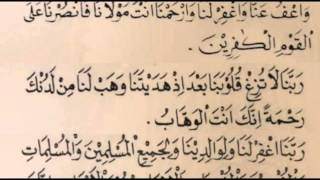 وَاعْفُ عَنَّا وَاغْفِرْ لَنَا وَارْحَمْنَا اَنْتَ مَوْلَانَا فَانْصُرْنَا عَلَى
الْقَوْمِ الْكَافِرِيْنَ.
رَبَّنَا لَا تُزِغْ قُلُوْبَنَا بَعْدَ اِذْ هَدَيْتَنَا وَهَبْ لَنَا مِنْ لَدُنْكَ
رَحْمَةً اِنَّكَ اَنْتَ الْوَهَّابُ.
رَبَّنَا اغْفِرْ لَنَا وَلِوَالِدِيْنَا وَلِجَمِيْعِ الْمُسْلِمِيْنَ وَالْمُسْلِمَاتِ